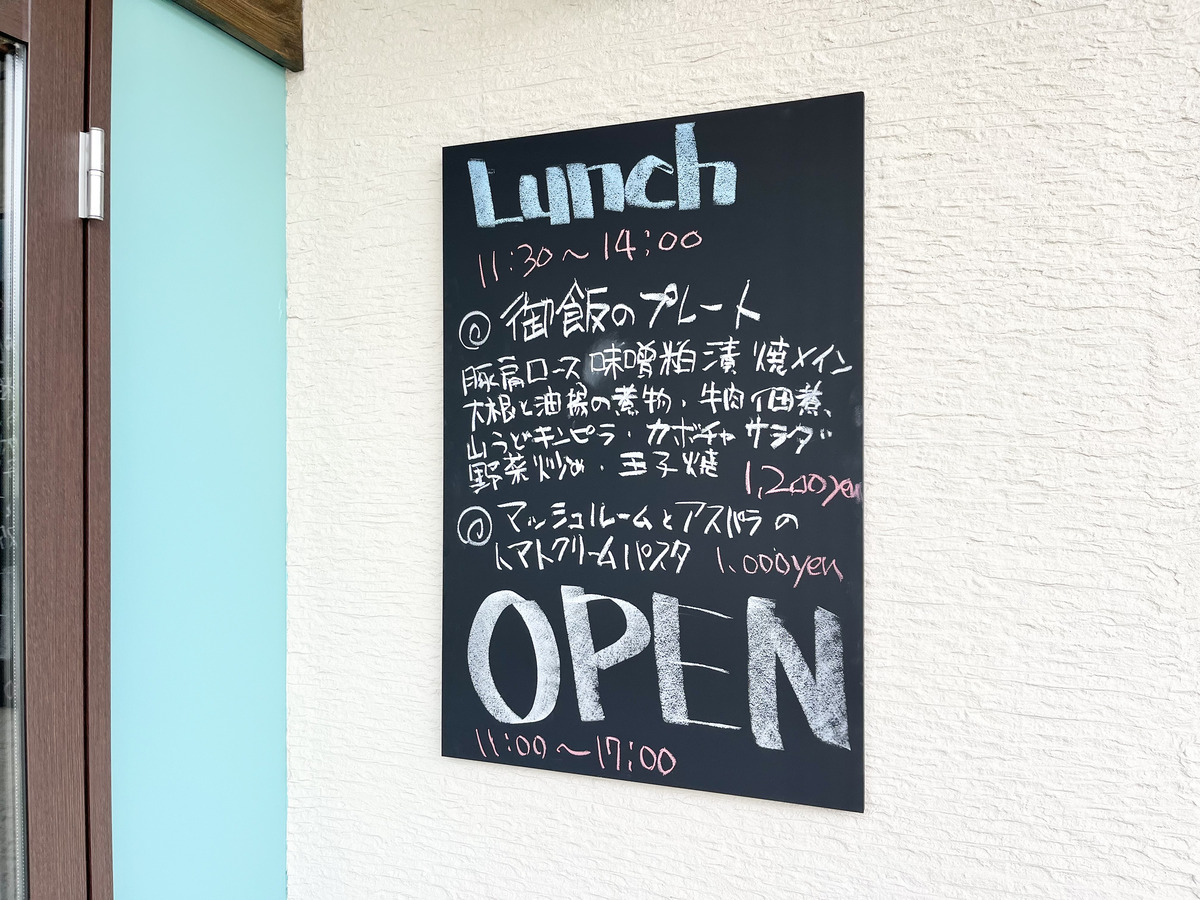 Lunch
11:30～14:00
◎ 御飯のプレート
豚肩ロース味噌粕漬焼メイン
大根と油揚の煮物・牛肉佃煮、
山うどキンピラ・カボチャサラダ
野菜炒め・玉子焼 1,200yen
◎ マッシュルームとアスパラの
トマトクリームパスタ 1,000yen
OPEN
11:00～17:00